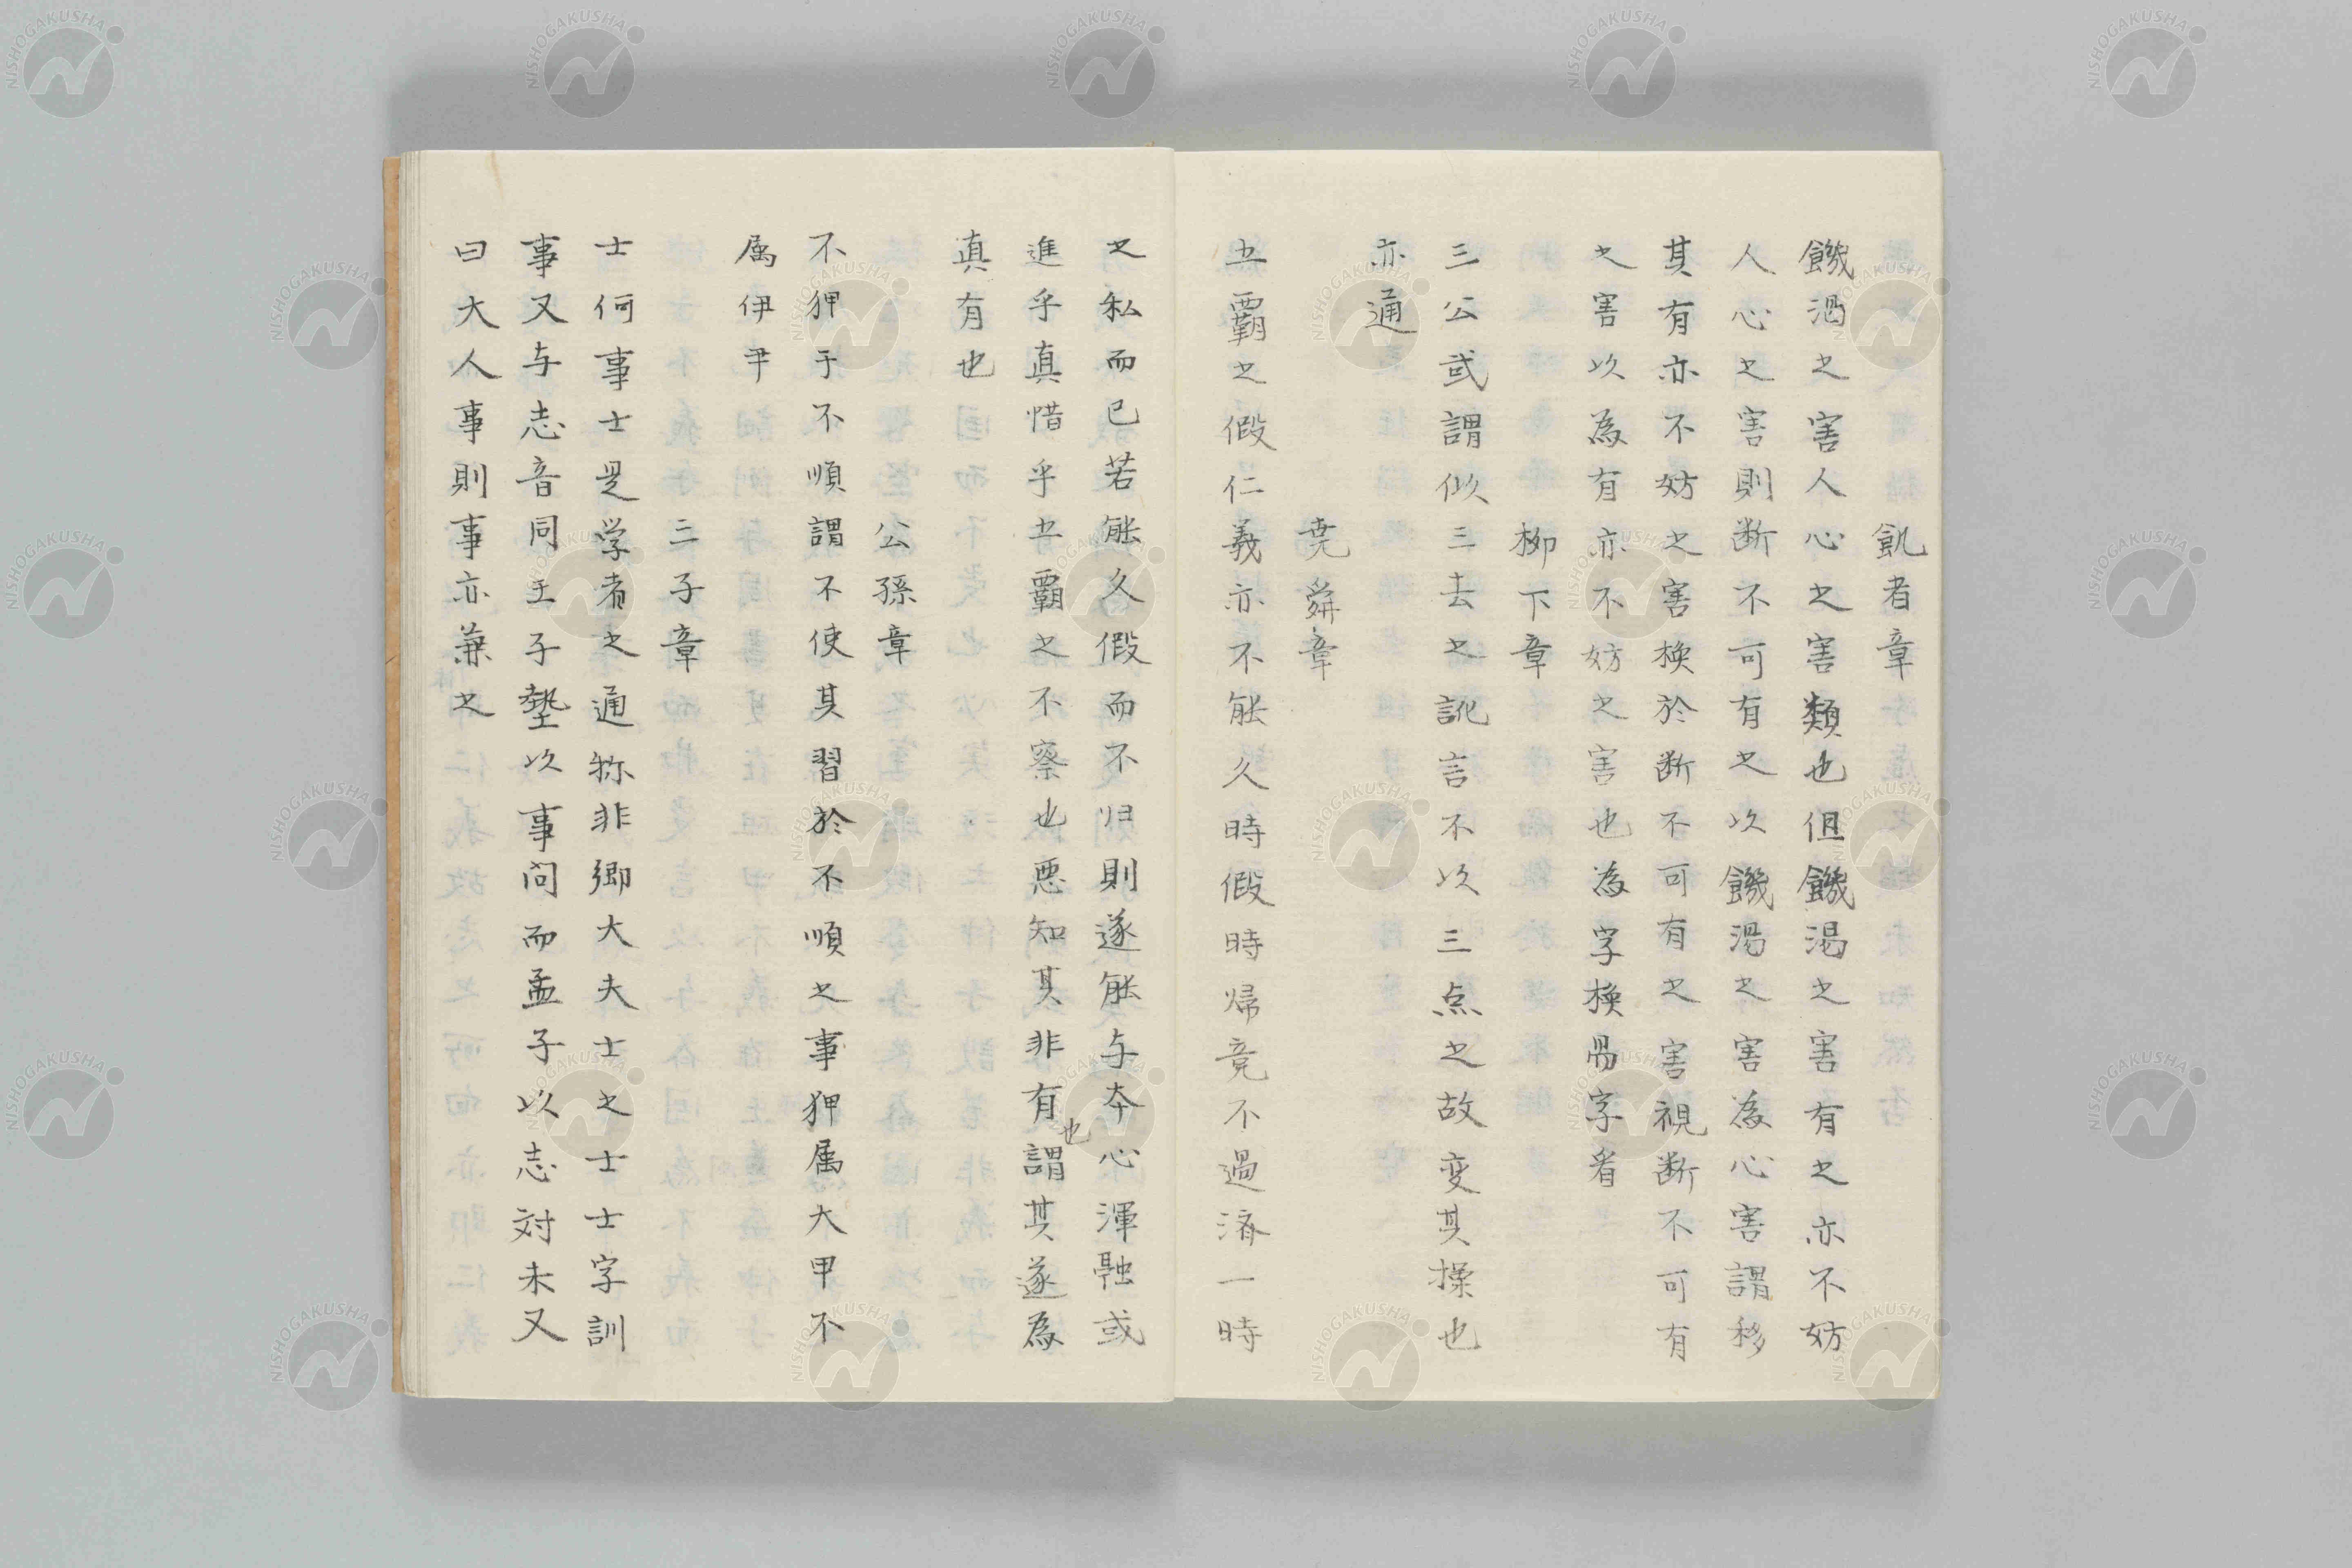 飢者章
饑渇之害人心之害類也但饑渇之害有之亦不妨
人心之害則断不可有之以饑渇之害為心害謂移
其有亦不妨之害換於断不可有之害視断不可有
之害以為有亦不妨之害也為字換易字看
柳下章
三公或謂似三去之訛言不以三点之故変其操也
亦通
尭舜章
五霸之假仁義亦不能久時假時帰竟不過済一時
之私而已若能久假而不归則遂能与夲心渾融或
進乎真惜乎五霸之不察也悪知其非有也謂其遂為
真有也
公孫章
不狎于不順謂不使其習於不順之事狎属大甲不
属伊尹
三子章
士何事士是学者之通称非卿大夫士之士士字訓
事又与志音同王子墊以事问而孟子以志対未又
曰大人事則事亦兼之
NISHOGAKUSHA